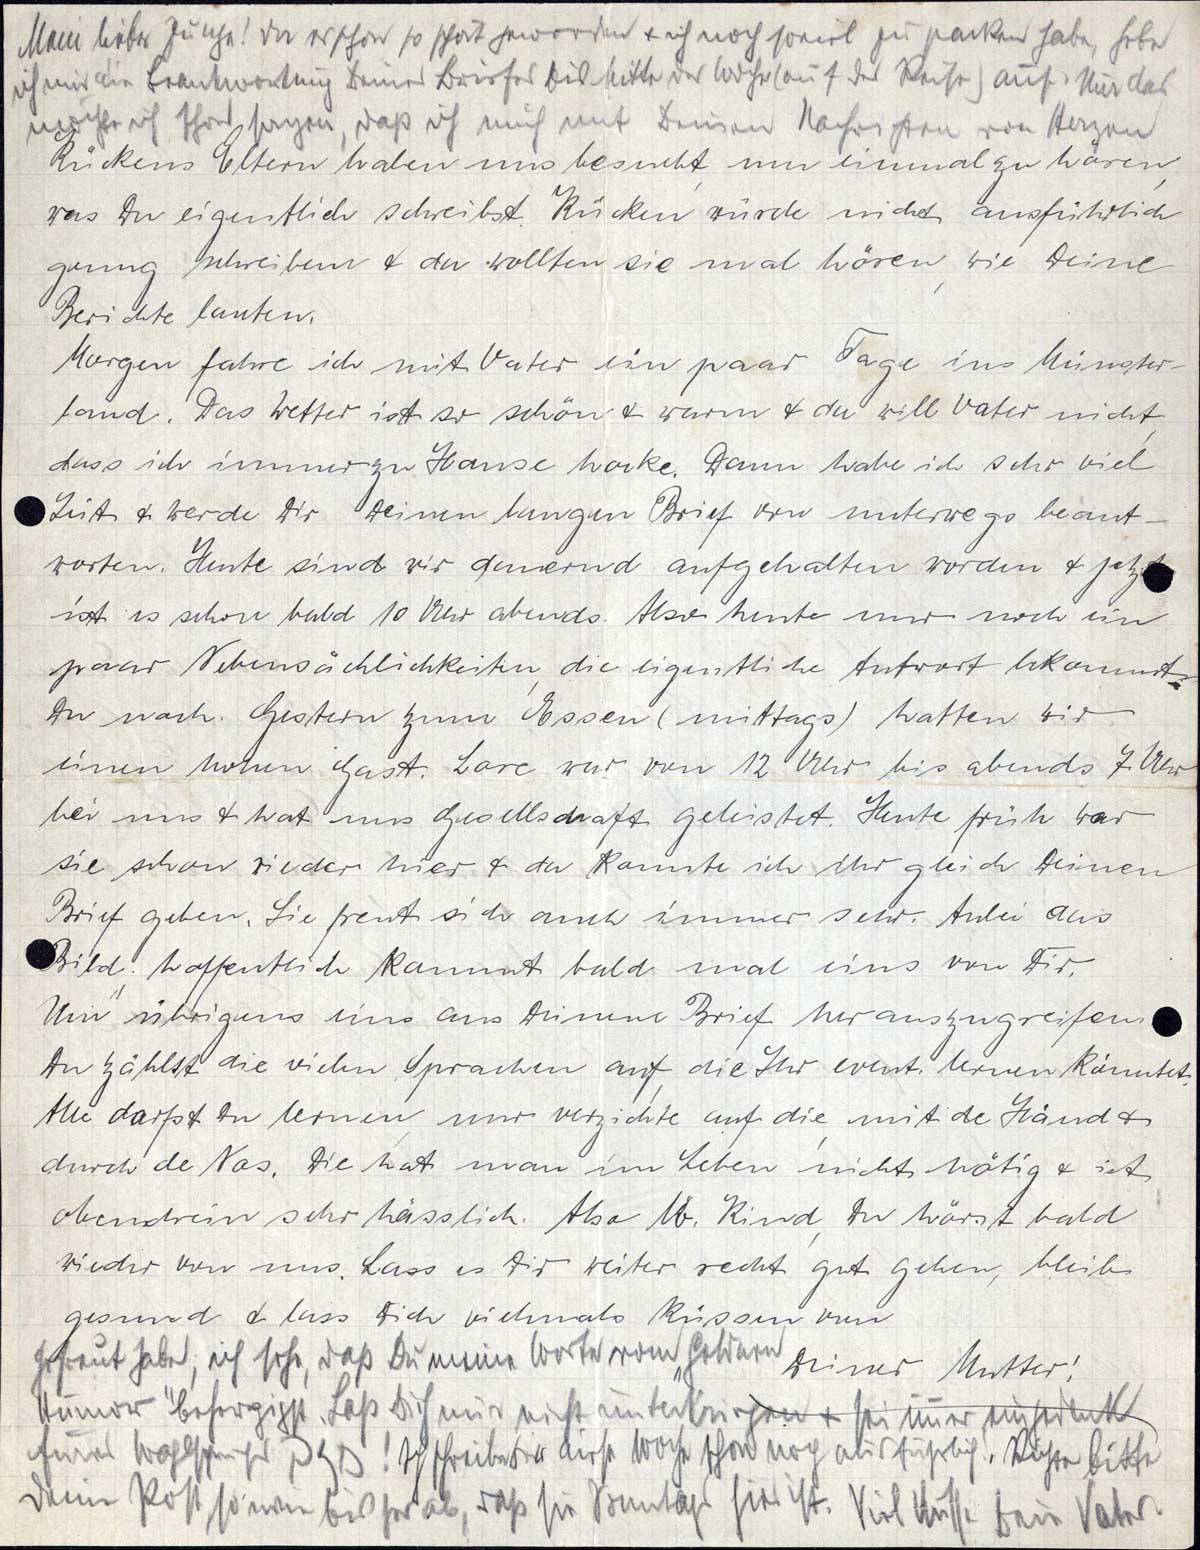 Mein lieber Junge! Da es schon so spät geworden & ich noch soviel zu packen habe, hebe
ich mir die Beantwortung Deines Briefes bis Mitte der Woche (auf der Reise) auf. Nur das
möchte ich schon sagen, daß ich mich mit Deinen Nachrichten von Herzen
Rückens Eltern haben uns besucht, um einmal zu hören,
was Du eigentlich schreibst. Rücken würde nicht ausführlich
genug schreiben & da wollten sie mal hören, wie Deine
Berichte lauten.
Morgen fahre ich mit Vater ein paar Tage ins Münster-
land. Das Wetter ist so schön & warm & da will Vater nicht,
dass ich immer zu Hause hocke. Dann habe ich sehr viel
Zeit & werde Dir Deinen langen Brief von unterwegs beant-
worten. Heute sind wir dauernd aufgehalten worden & jetzt
ist es schon bald 10 Uhr abends. Also heute nur noch ein
paar Nebensächlichkeiten, die eigentliche Antwort bekommst
Du noch. Gestern zum Essen (mittags) hatten wir
einen hohen Gast. Lore war von 12 Uhr bis abends 7 Uhr
bei uns & hat uns Gesellschaft geleistet. Heute früh war
sie schon wieder hier & da konnte ich ihr gleich Deinen
Brief geben. Sie freut sich auch immer sehr. Anbei das
Bild, hoffentlich kommt bald mal eins von Dir.
Um übrigens eins aus Deinem Brief herauszugreifen.
Du zählst die vielen Sprachen auf, die Ihr event. lernen könntet.
Alle darfst Du lernen, nur verzichte auf die, mit de Händ &
durch de Nas. Die hat man im Leben nicht nötig & ist
obendrein sehr hässlich. Also lb. Kind, Du hörst bald
wieder von uns. Lass es Dir weiter recht gut gehen, bleib
gesund & lass Dich vielmals küssen von
Deiner Mutter!
gefreut habe, ich sehe, daß Du meine Worte vom "goldnen
Humor" beherzigst. Laß Dich nur nicht unterkriegen & sei immer eingedenk
Eures Wahlspruchs ! Ich schreibe Dir diese Woche schon noch ausführlich. Richte bitte
Deine Post, so wie bisher ab, daß sie Sonntags hier ist. Viel Küsse Dein Vater.